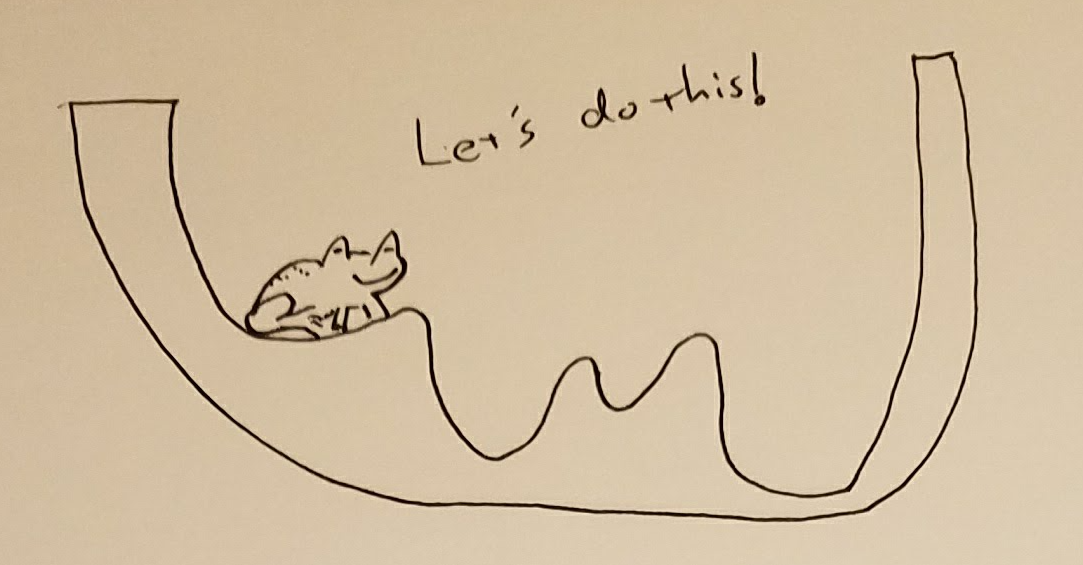 Let's do this!